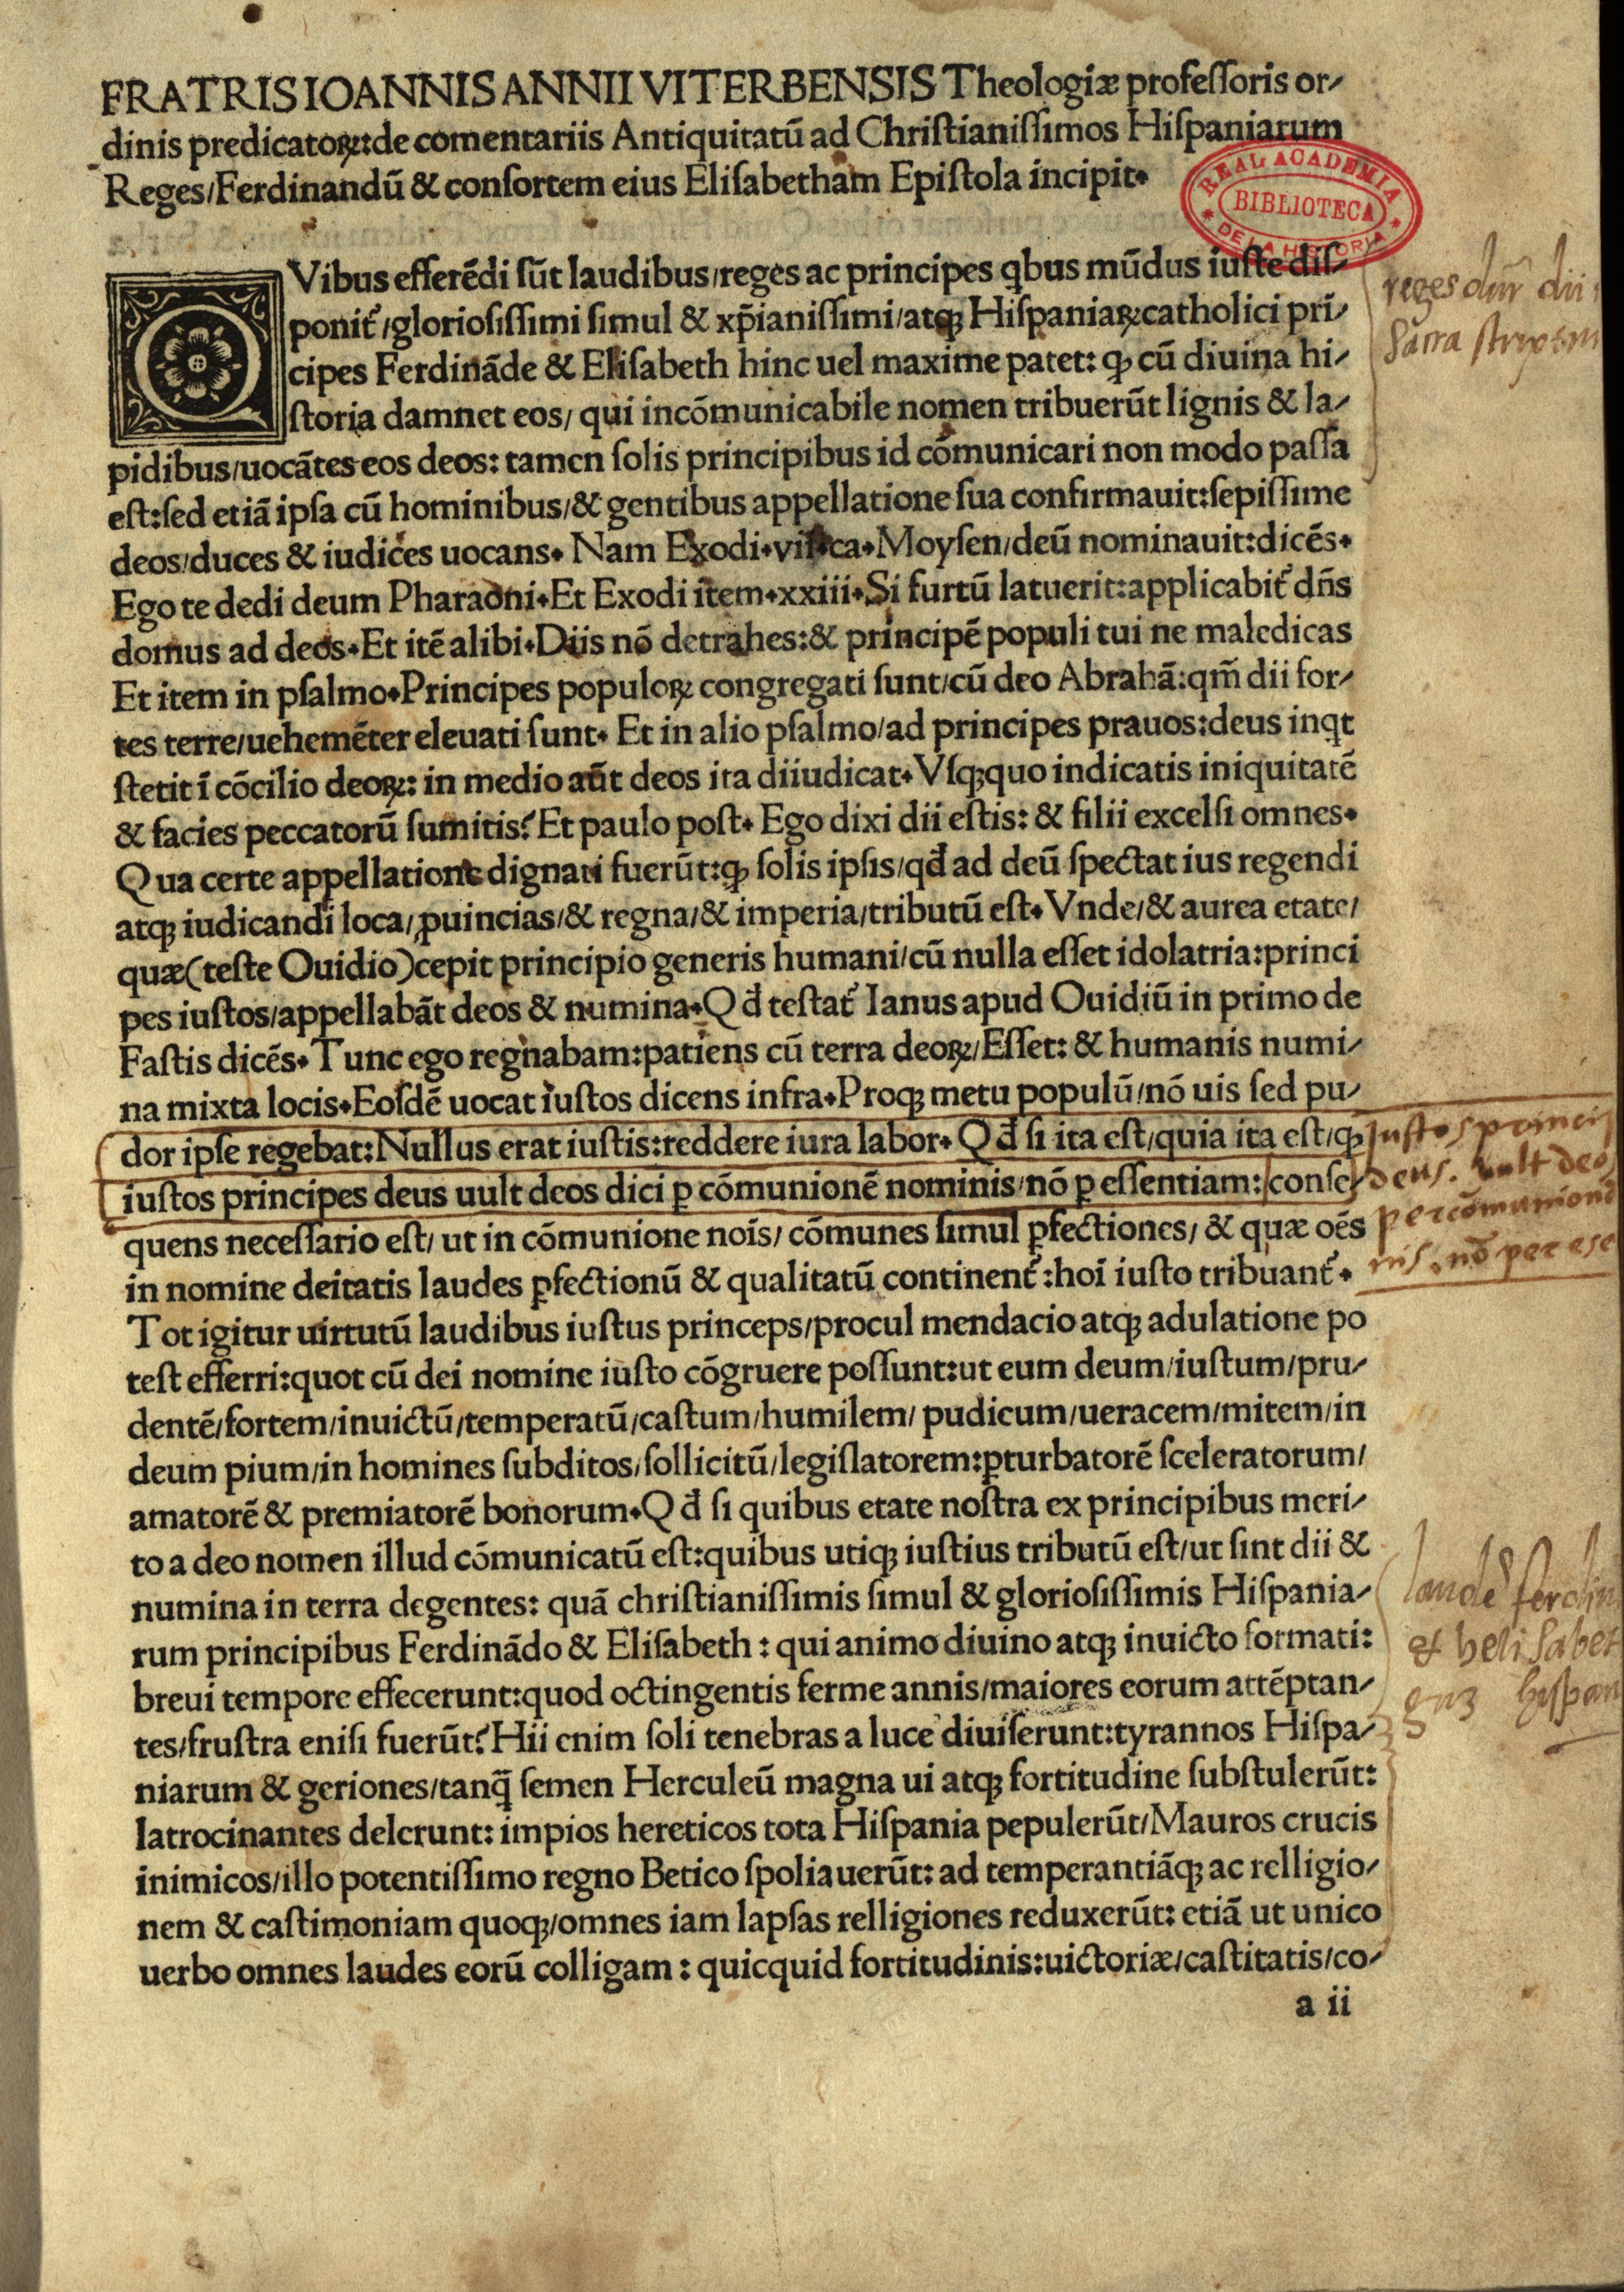 FRATRIS IOANNIS ANNII VITERBENSIS Theologiæ profeſſoris or/
dinis predicatoꝝ:de comentariis Antiquitatū ad Chriſtianiſſimos Hiſpaniarum
Reges/Ferdinandū & conſortem eius Eliſabetham Epiſtola incipit.
REAL ACADEMIA
BIBLIOTECA
DE LA HISTORIA
QVibus efferēdi sūt laudibus/reges ac principes qbus mūdus iuſte diſ/
ponit᷑/glorioſiſſimi ſimul & xp̄ianiſſimi/atqꝫ Hiſpaniaꝝ catholici prī/
cipes Ferdinãde & Eliſabeth hinc uel maxime patet: ꝙ cū diuina hi/
ſtoria damnet eos/ qui incōmunicabile nomen tribuerūt lignis & la/
pidibus/uocãtes eos deos: tamen ſolis principibus id cōmunicari non modo paſſa
eſt:ſed etiã ipſa cū hominibus/& gentibus appellatione ſua confirmauit:ſepiſſime
deos/duces & iudices uocans. Nam Exodi.vii.ca.Moyſen/deū nominauit:dicēs.
Ego te dedi deum Pharaoni.Et Exodi item.xxiii.Si furtū latuerit:applicabit᷑ dn̄s
domus ad deos.Et itē alibi.Diis nō detrahes:& principē populi tui ne maledicas
Et item in pſalmo.Principes populoꝝ congregati ſunt/cū deo Abrahã:qm̄ dii for/
tes terre/uehemēter eleuati ſunt. Et in alio pſalmo/ad principes prauos:deus inqt
ſtetit ī cōcilio deoꝝ: in medio aūt deos ita diiudicat.Vſqꝫquo indicatis iniquitatē
& facies peccatorū ſumitis? Et paulo poſt. Ego dixi dii eſtis: & filii excelſi omnes.
Qua certe appellatione dignati fuerūt:ꝙ ſolis ipſis/qđ ad deū ſpectat ius regendi
atqꝫ iudicandi loca/ꝓuincias/& regna/& imperia/tributū eſt. Vnde/& aurea etate/
quæ(teſte Ouidio)cepit principio generis humani/cū nulla eſſet idolatria:princi
pes iuſtos/appellabãt deos & numina.Qđ teſtat᷑ Ianus apud Ouidiū in primo de
Faſtis dicēs. Tunc ego regnabam:patiens cū terra deoꝝ/Eſſet: & humanis numi/
na mixta locis.Eoſdē uocat iuſtos dicens infra.Proqꝫ metu populū/nō uis ſed pu/
dor ipſe regebat:Nullus erat iuſtis:reddere iura labor. Qđ ſi ita eſt/quia ita eſt/ꝙ
iuſtos principes deus uult deos dici ꝑ cōmunionē nominis/nō ꝑ eſſentiam: conſe/
quens neceſſario eſt/ ut in cōmunione noīs/ cōmunes ſimul ꝑfectiones/ & quæ oēs
in nomine deitatis laudes ꝑfectionū & qualitatū continent᷑:hoī iuſto tribuant᷑.
Tot igitur uirtutū laudibus iuſtus princeps/procul mendacio atqꝫ adulatione po
teſt efferri:quot cū dei nomine iuſto cōgruere poſſunt:ut eum deum/iuſtum/pru/
dentē/fortem/inuictū/temperatū/caſtum/humilem/ pudicum/ueracem/mitem/in
deum pium/in homines ſubditos/ſollicitū/legiſlatorem:ꝑturbatorē ſceleratorum/
amatorē & premiatorē bonorum.Qđ ſi quibus etate noſtra ex principibus meri/
to a deo nomen illud cōmunicatū eſt:quibus utiqꝫ iuſtius tributū eſt/ut ſint dii &
numina in terra degentes: quã chriſtianiſſimis ſimul & glorioſiſſimis Hiſpania/
rum principibus Ferdinãdo & Eliſabeth : qui animo diuino atqꝫ inuicto formati:
breui tempore effecerunt:quod octingentis ferme annis/maiores eorum attēptan/
tes/fruſtra eniſi fuerūt? Hii enim ſoli tenebras a luce diuiſerunt:tyrannos Hiſpa/
niarum & geriones/tanq̄ ſemen Herculeū magna ui atqꝫ fortitudine ſubſtulerūt:
latrocinantes delerunt: impios hereticos tota Hiſpania pepulerūt/Mauros crucis
inimicos/illo potentiſſimo regno Betico ſpoliauerūt: ad temperantiãqꝫ ac relligio/
nem & caſtimoniam quoqꝫ/omnes iam lapſas relligiones reduxerūt: etiã ut unico
uerbo omnes laudes eorū colligam : quicquid fortitudinis:uictoriæ/caſtitatis/co/
a ii
reges dūr dii
Sacra
justos princip
deus. vult deo
per cōmunionē
nis. nō per ese
laudē ferdin
& helisabet
hispan